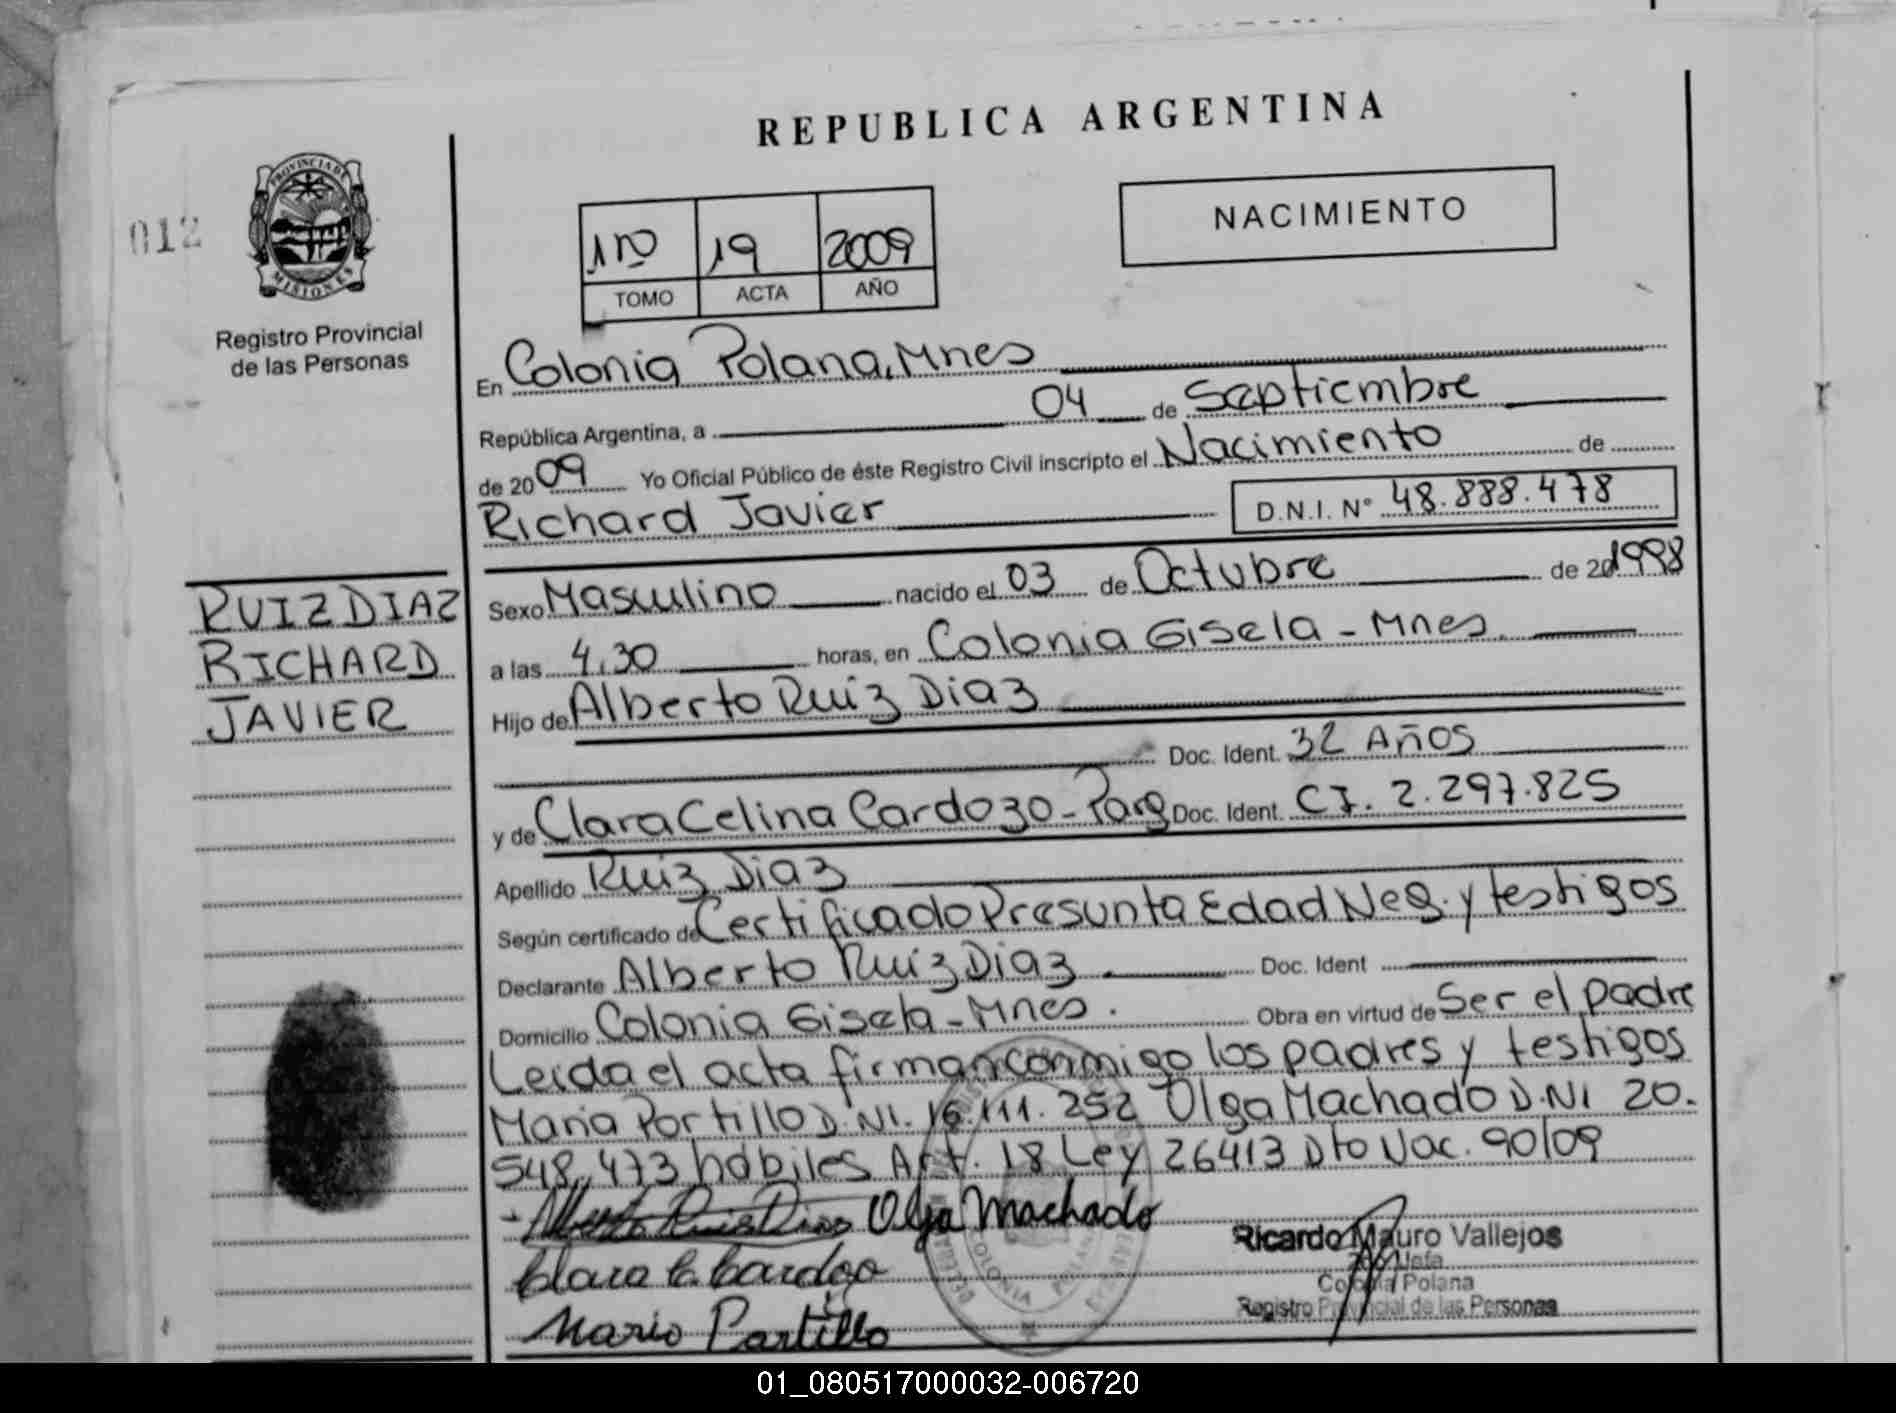 REPUBLICA ARGENTINA
012
PROVINCIA DE
MISIONES
Registro Provincial
de las Personas
1ro 19 2009
TOMO ACTA AÑO
NACIMIENTO
En Colonia Polana, Mnes
República Argentina, a 04 de Septiembre
de 2009 Yo Oficial Público de éste Registro Civil inscripto el Nacimiento de
Richard Javier D.N.I. N° 48.888.478
RUIZ DIAZ
RICHARD
JAVIER
Sexo Masculino nacido el 03 de Octubre de 201998
a las 4,30 horas, en Colonia Gisela - Mnes.
Hijo de Alberto Ruiz Diaz
Doc. Ident. 32 Años
y de Clara Celina Cardozo - Parg Doc. Ident. CI. 2.297.825
Apellido Ruiz Diaz
Según certificado de Certificado Presunta Edad Neg. y testigos
Declarante Alberto Ruiz Diaz Doc. Ident
Domicilio Colonia Gisela - Mnes. Obra en virtud de Ser el padre
Leida el acta firman conmigo los padres y testigos
Maria Portillo D.NI. 16.111.252 Olga Machado D.NI 20.
548.473 habiles Art. 18 Ley 26413 Dto Nac. 90/09
Alberto Ruis Dias Olga Machado
Clara C. Cardozo
Mario Partillo
Ricardo Mauro Vallejos
Colonia Polana
Registro Provincial de las Personas
COLONIA POLANA
01_080517000032-006720